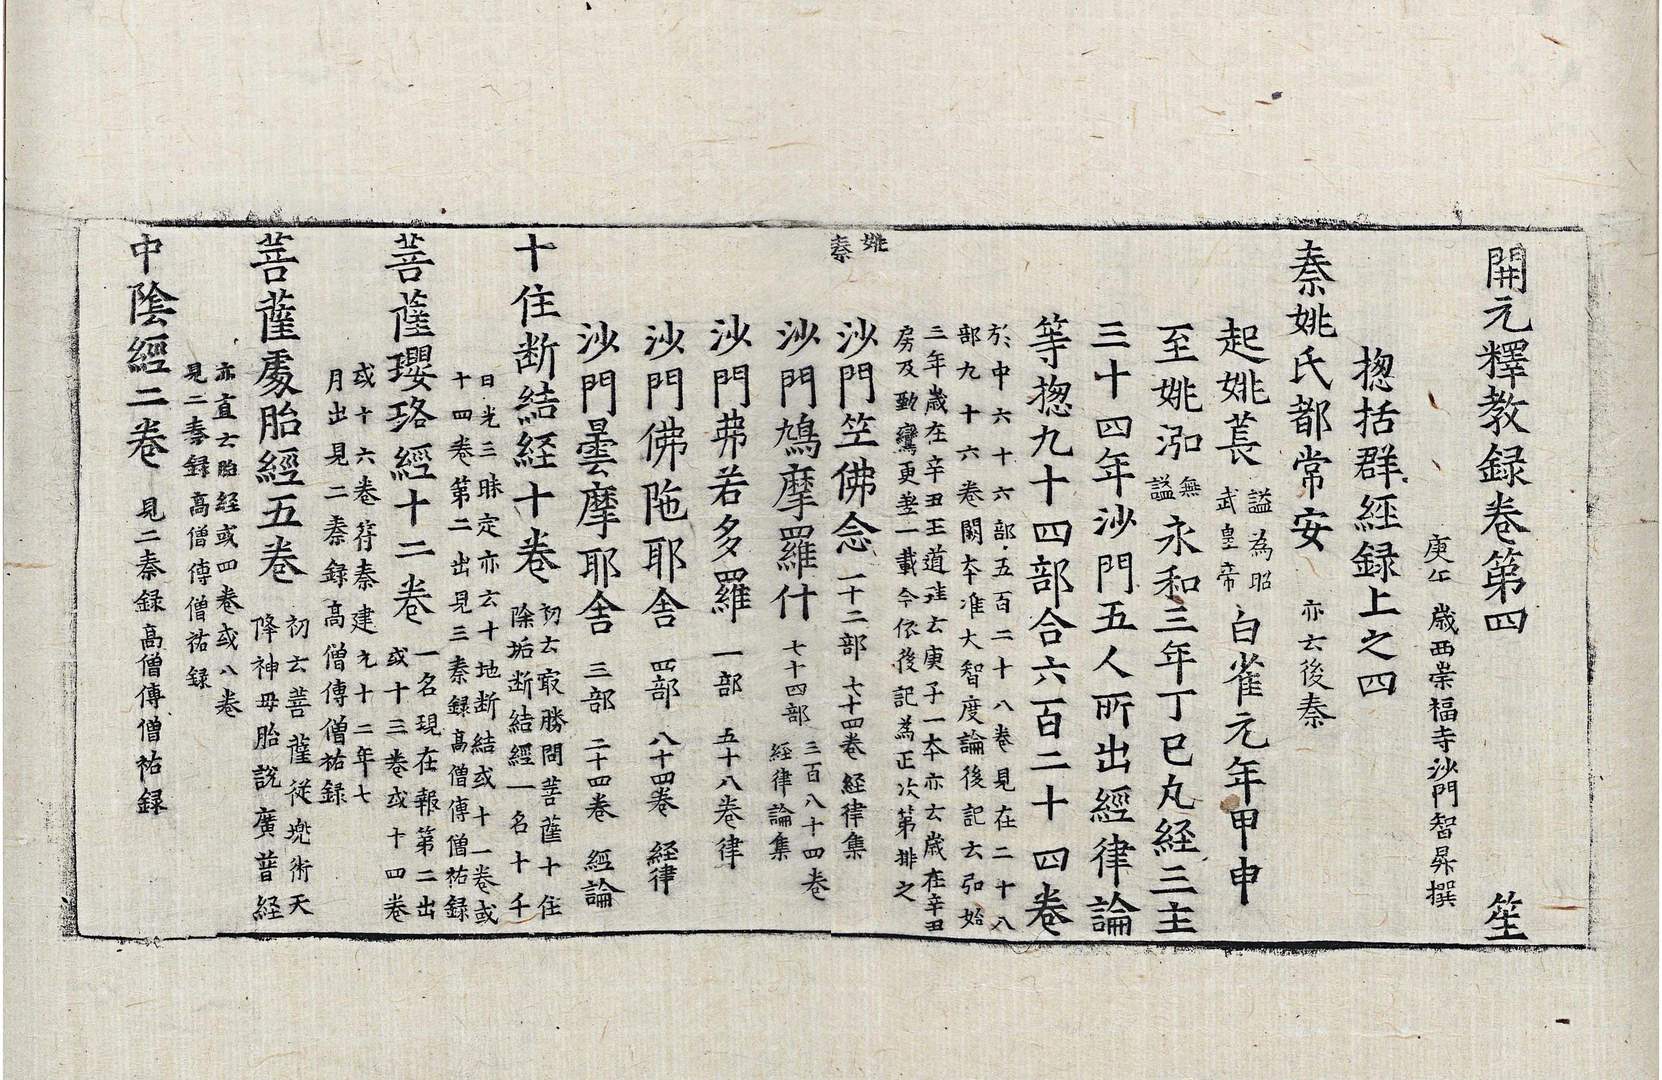 開元釋教録卷第四 笙
庚午歳西崇福寺沙門智昇撰
揔括群經録上之四
秦姚氏都常安 亦云後秦
起姚萇 謚為昭武皇帝 白雀元年甲申
至姚泓 無謚 永和三年丁巳凡経三主
三十四年沙門五人所出經律論
等揔九十四部合六百二十四卷
於中六十六部五百二十八卷見在二十八
部九十六卷闕本准大智度論後記云弘始
三年歳在辛丑王道珪云庚子一本亦云歳在辛丑
房及勘鸞更差一載今依後記為正次第排之
姚秦
沙門竺佛念 一十二部 七十四卷 経律集
沙門鳩摩羅什 七十四部 三百八十四卷 経律論集
沙門弗若多羅 一部 五十八卷律
沙門佛陁耶舍 四部 八十四卷 経律
沙門曇摩耶舍 三部 二十四卷 経論
十住断結経十卷 初云㝡勝問菩薩十住
除垢断結經一名十千
日光三昧定亦云十地断結或十一卷或
十四卷第二出見三秦録高僧傳僧祐録
菩薩瓔珞經十二卷 一名現在報第二出
或十三卷或十四卷
或十六卷苻秦建元十二年七
月出見二秦録高僧傳僧祐録
菩薩處胎經五卷 初云菩薩従兠術天
降神母胎說廣普経
亦直云胎経或四卷或八卷
見二秦録高僧傳僧祐録
中陰經二卷 見二秦録高僧傳僧祐録